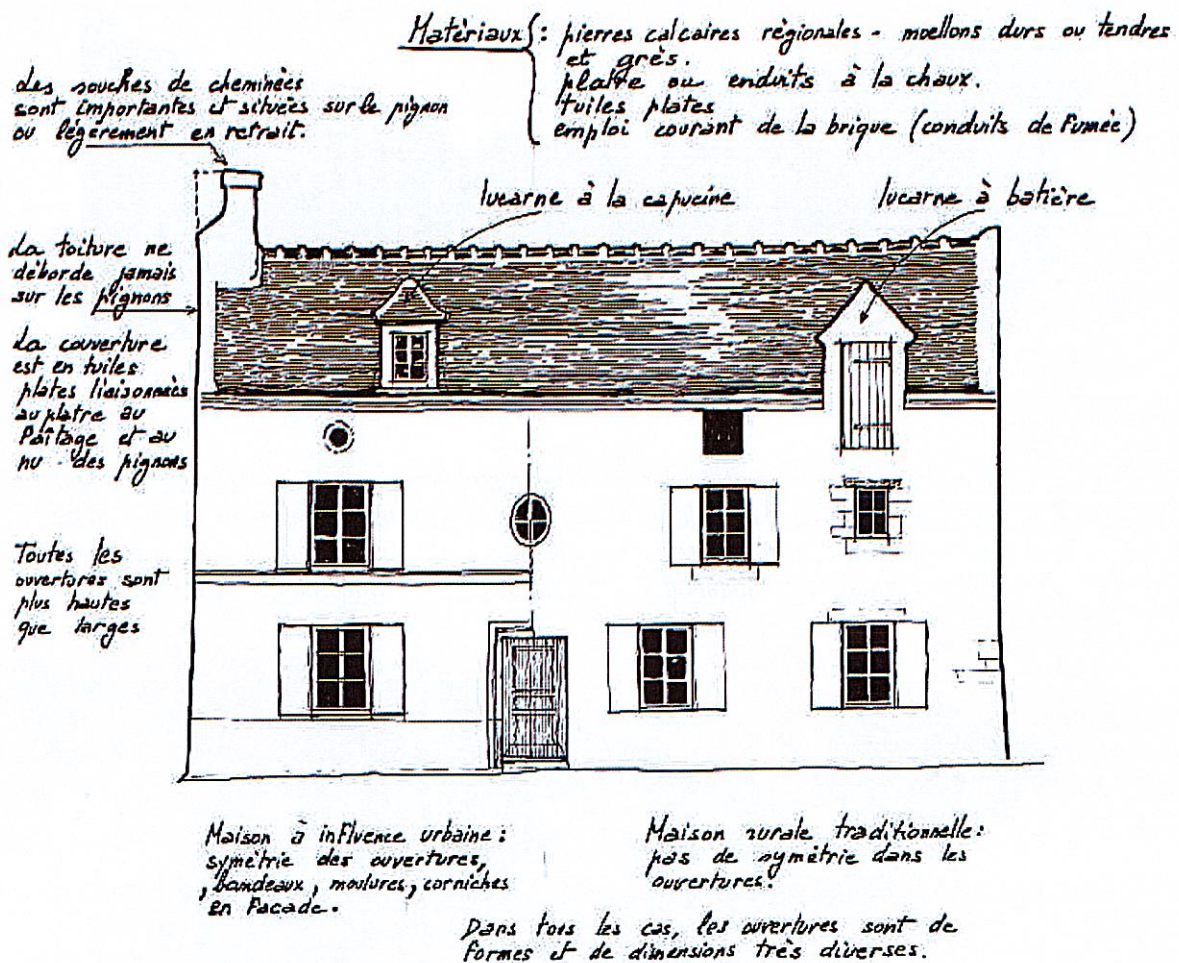 Matériaux : pierres calcaires régionales - moellons durs ou tendres
et grès.
platre ou enduits à la chaux.
tuiles plates
emploi courant de la brique (conduits de fumée)
Les souches de cheminées
sont importantes et situées sur le pignon
ou légerement en retrait.
lucarne à la capucine
lucarne à batière
La toiture ne
déborde jamais
sur les pignons
La couverture
est en tuiles
plates liaisonnées
au platre au
faîtage et au
nu des pignons
Toutes les
ouvertures sont
plus hautes
que larges
Maison à influence urbaine :
symétrie des ouvertures,
, bandeaux, moulures, corniches
en facade.
Maison rurale traditionnelle :
pas de symétrie dans les
ouvertures.
Dans tous les cas, les ouvertures sont de
formes et de dimensions très diverses.